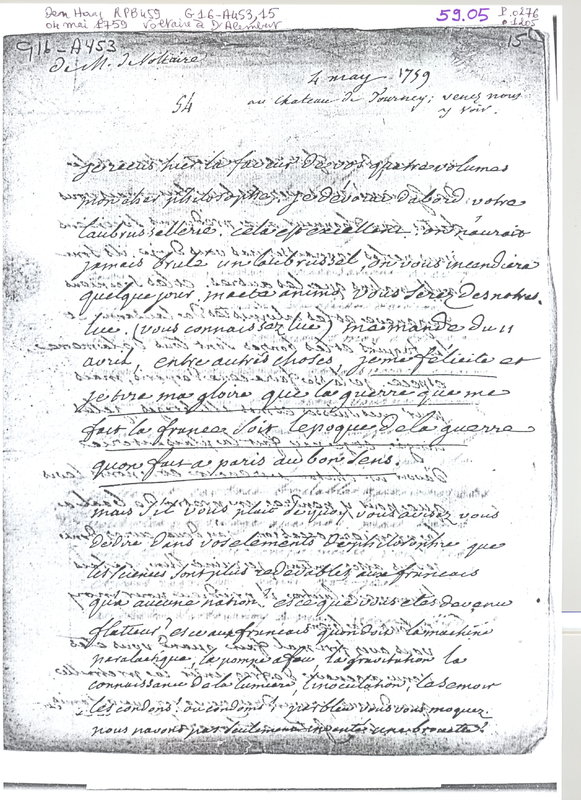 Den Haag RPB459 G16-A453,15 59.05 P.0276
04 mai 1759 Voltaire à D'Alembert P.1205
G16-A453 15
de M. de Voltaire
4 may 1759
54 au chateau de Tourney; venez nous
y voir.
je recus hier la faveur de vos quatre volumes
mon cher philosophe, je devorai dabord votre
laubrussellerie. cela est excellent. on n'aurait
jamais brulé un laubrussel on vous incendiera
quelque jour, macte animo, vous serez des notres.
luc (vous connaissez luc) me mande du 11
avril, entre autres choses, je me félicite et
je tire ma gloire que la guerre que me
fait la france soit lepoque de la guerre
quon fait a paris au bon sens.
mais s'il vous plait dequoy vous avisez vous
de dire dans vos elements de philosophie que
les siences sont plus redevables aux francais
qua aucune nation. esce que vous etes devenu
flatteur? esce aux francais quon doit la machine
paralactique, la pompe a feu, la gravitation la
connaissance de la lumiere, l'inoculation, le semoir
les condons, ou condoms? parbleu vous vous moquez.
nous navons pas seulement inventé une brouette!